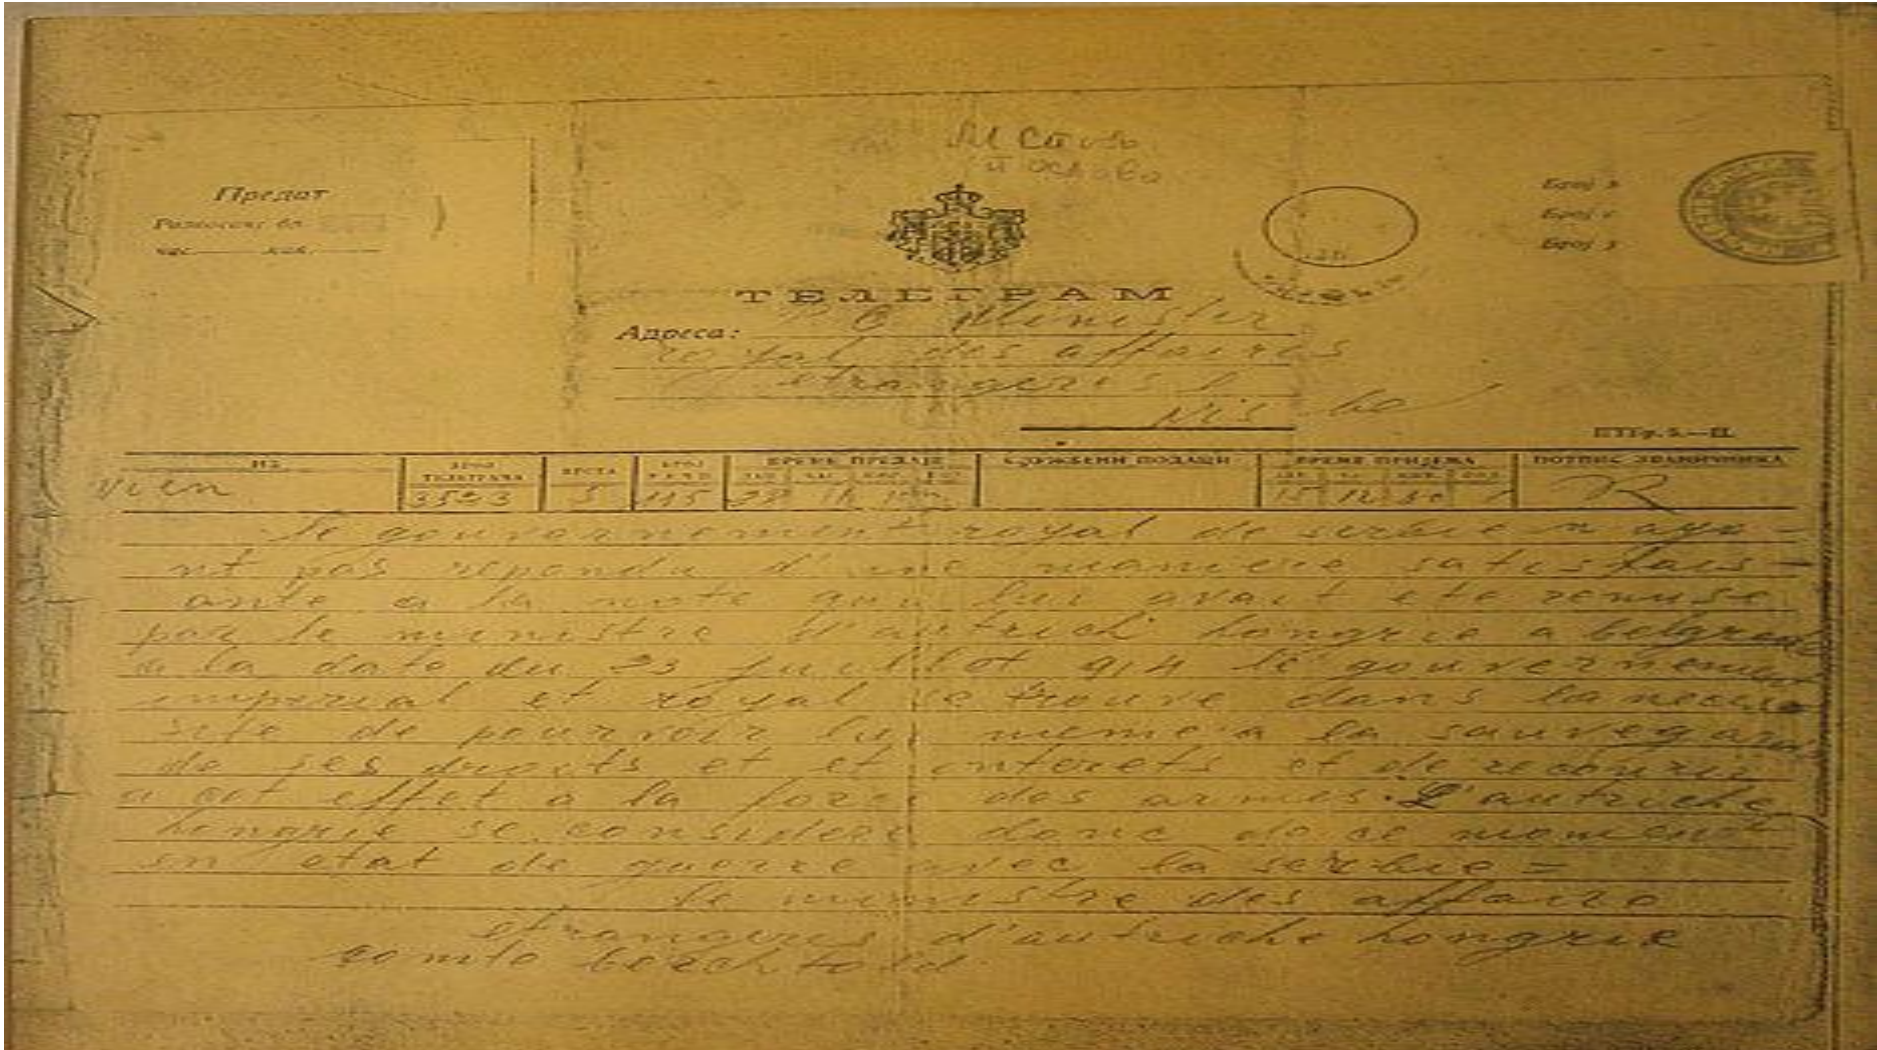 Предат
час кол.
ТЕЛЕГРАМ
Адреса: Minister
royal des affaires
etrangeres
Nis
ИЗ БРОЈ ТЕЛЕГРАМА ВРСТА БРОЈ РЕЧИ ВРЕМЕ ПРЕДАЈЕ СЛУЖБЕНИ ПОДАЦИ ВРЕМЕ ПРИЈЕМА ПОТПИС ЗВАНИЧНИКА
Wien 3523 5 115 28
le gouvernement royal de serbie n aya=
nt pas repondu d'une maniere satisfais=
ante a la note qui lui avait ete remise
par le ministre d'autrich hongrie a belgrade
a la date du 23 juillet 914 le gouvernement
imperial et royal se trouve dans la neces
site de pourvoir lui meme a la sauvegarde
de ses droits et et interets et de recourir
a cet effet a la force des armes. L'autriche
hongrie se considere donc de ce moment
en etat de guerre avec la serbie=
le ministre des affaire
etrangeres d'autriche hongrie
comte berchtold